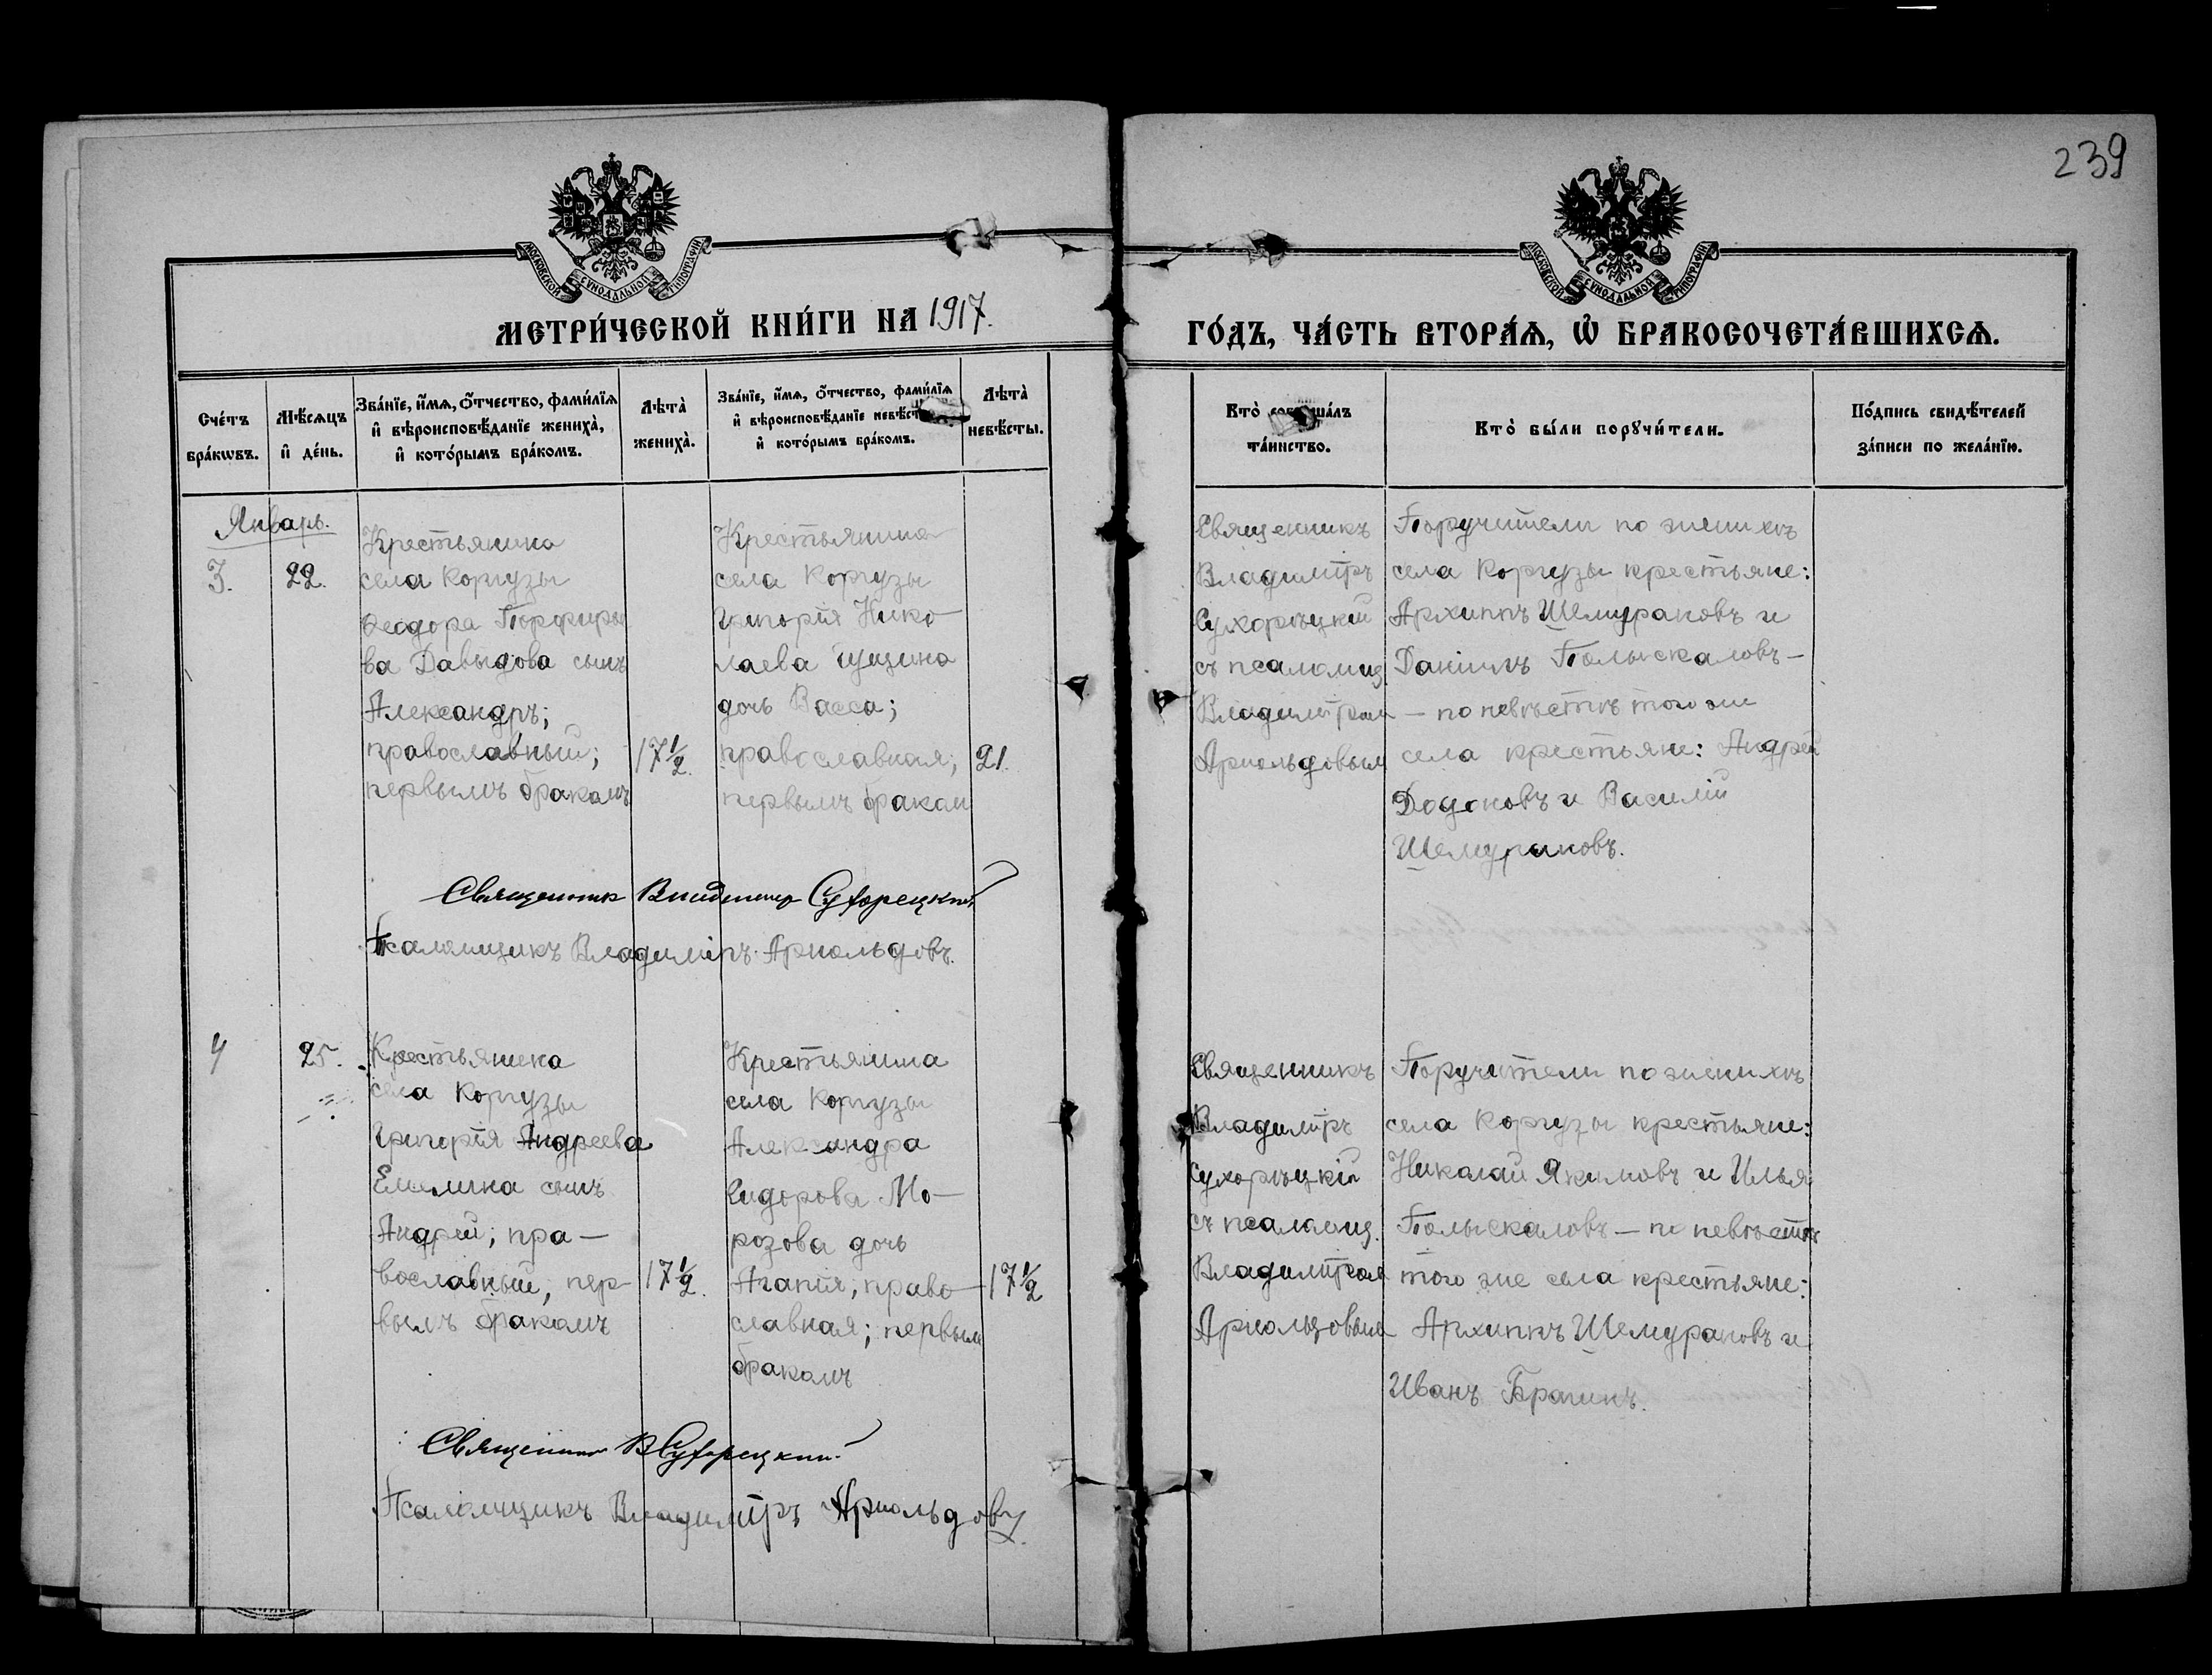 239
МОСКОВСКОЙ СѴНОДАЛЬНОЙ ТИПОГРАФІИ
МОСКОВСКОЙ СѴНОДАЛЬНОЙ ТИПОГРАФІИ
МЕТРИ́ЧЕСКОЙ КНИ́ГИ НА 1917.
ГО́ДЪ, ЧА́СТЬ ВТОРА́Ѧ, Ѽ БРАКОСОЧЕТА́ВШИХСѦ.
Сче́тъ
бра́кѡвъ.
Мѣ́сяцъ
и҆ де́нь.
Зва́нїе, и҆́мѧ, ѻ҆́тчество, фами́лїѧ
и҆ вѣроисповѣ́данїе жениха̀,
и҆ кото́рымъ бра́комъ.
Лѣта̀
жениха̀.
Зва́нїе, и҆́мѧ, ѻ҆́тчество, фами́лїѧ
и҆ вѣроисповѣ́данїе невѣ́сты
и҆ кото́рымъ бра́комъ.
Лѣта̀
невѣ́сты.
Кто̀ соверша́лъ
та́инство.
Кто̀ бы́ли порꙋчи́тели.
По́дпись свидѣ́телей
за́писи по жела́нїю.
Январь.
3.
22.
Крестьянина
села Коргузы
Ѳеодора Порфирье
ва Давыдова сынъ
Александръ;
православный;
первымъ бракомъ
17 1/2.
Крестьянина
села Коргузы
Григорія Нико-
лаева Гущина
дочь Васса;
православная;
первымъ браком
21.
Священникъ
Владиміръ
Сухорѣцкій
съ псаломщ.
Владиміром
Арнольдовым
Поручители по женихѣ
села Коргузы крестьяне:
Архиппъ Шемураковъ и
Даніилъ Полыскаловъ-
- по невѣстѣ того же
села крестьяне: Андрей
Додоновъ и Василій
Шемураковъ.
Священникъ Владимир Сухорецкий
Псаломщикъ Владиміръ Арнольдовъ.
4
25.
Крестьянина
села Коргузы
Григорія Андреева
Емелина сынъ
Андрей; пра-
вославный; пер-
вымъ бракомъ
17 1/2.
Крестьянина
села Коргузы
Александра
Сидорова Мо-
розова дочь
Агапія; право-
славная; первым
бракомъ
17 1/2
Священникъ
Владиміръ
Сухорѣцкій
съ псаломщ.
Владиміром
Арнольдовым
Поручители по женихѣ
села Коргузы крестьяне:
Николай Якимовъ и Илья
Полыскаловъ - по невѣстѣ
того же села крестьяне:
Архиппъ Шемураковъ и
Иванъ Брагинъ.
Священник В Сухорецкий
Псаломщикъ Владиміръ Арнольдовъ.